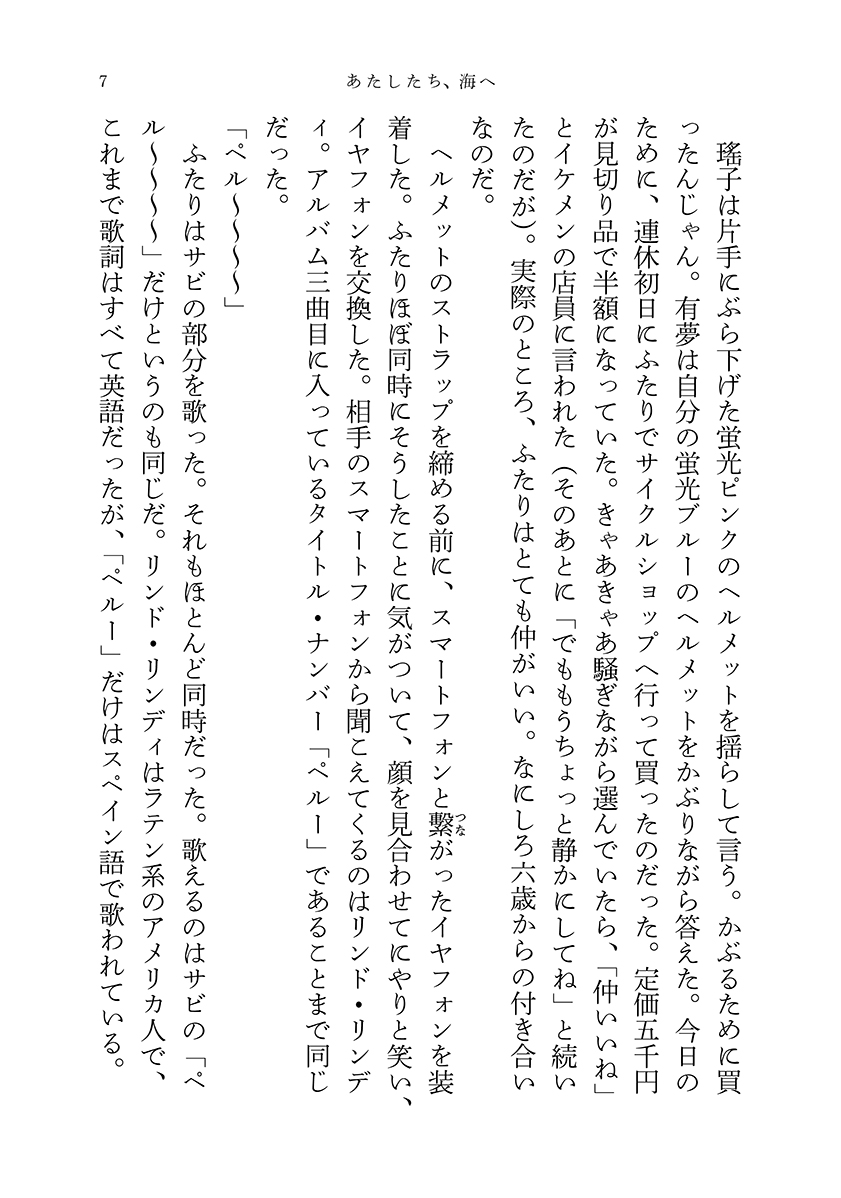 7
あたしたち、海へ
瑤子は片手にぶら下げた蛍光ピンクのヘルメットを揺らして言う。かぶるために買
ったんじゃん。有夢は自分の蛍光ブルーのヘルメットをかぶりながら答えた。今日の
ために、連休初日にふたりでサイクルショップへ行って買ったのだった。定価五千円
が見切り品で半額になっていた。きゃあきゃあ騒ぎながら選んでいたら、「仲いいね」
とイケメンの店員に言われた（そのあとに「でももうちょっと静かにしてね」と続い
たのだが）。実際のところ、ふたりはとても仲がいい。なにしろ六歳からの付き合い
なのだ。
ヘルメットのストラップを締める前に、スマートフォンと繋がったイヤフォンを装
つな
着した。ふたりほぼ同時にそうしたことに気がついて、顔を見合わせてにやりと笑い、
イヤフォンを交換した。相手のスマートフォンから聞こえてくるのはリンド・リンデ
ィ。アルバム三曲目に入っているタイトル・ナンバー「ペルー」であることまで同じ
だった。
「ペル〜〜〜〜」
ふたりはサビの部分を歌った。それもほとんど同時だった。歌えるのはサビの「ペ
ル〜〜〜〜」だけというのも同じだ。リンド・リンディはラテン系のアメリカ人で、
これまで歌詞はすべて英語だったが、「ペルー」だけはスペイン語で歌われている。